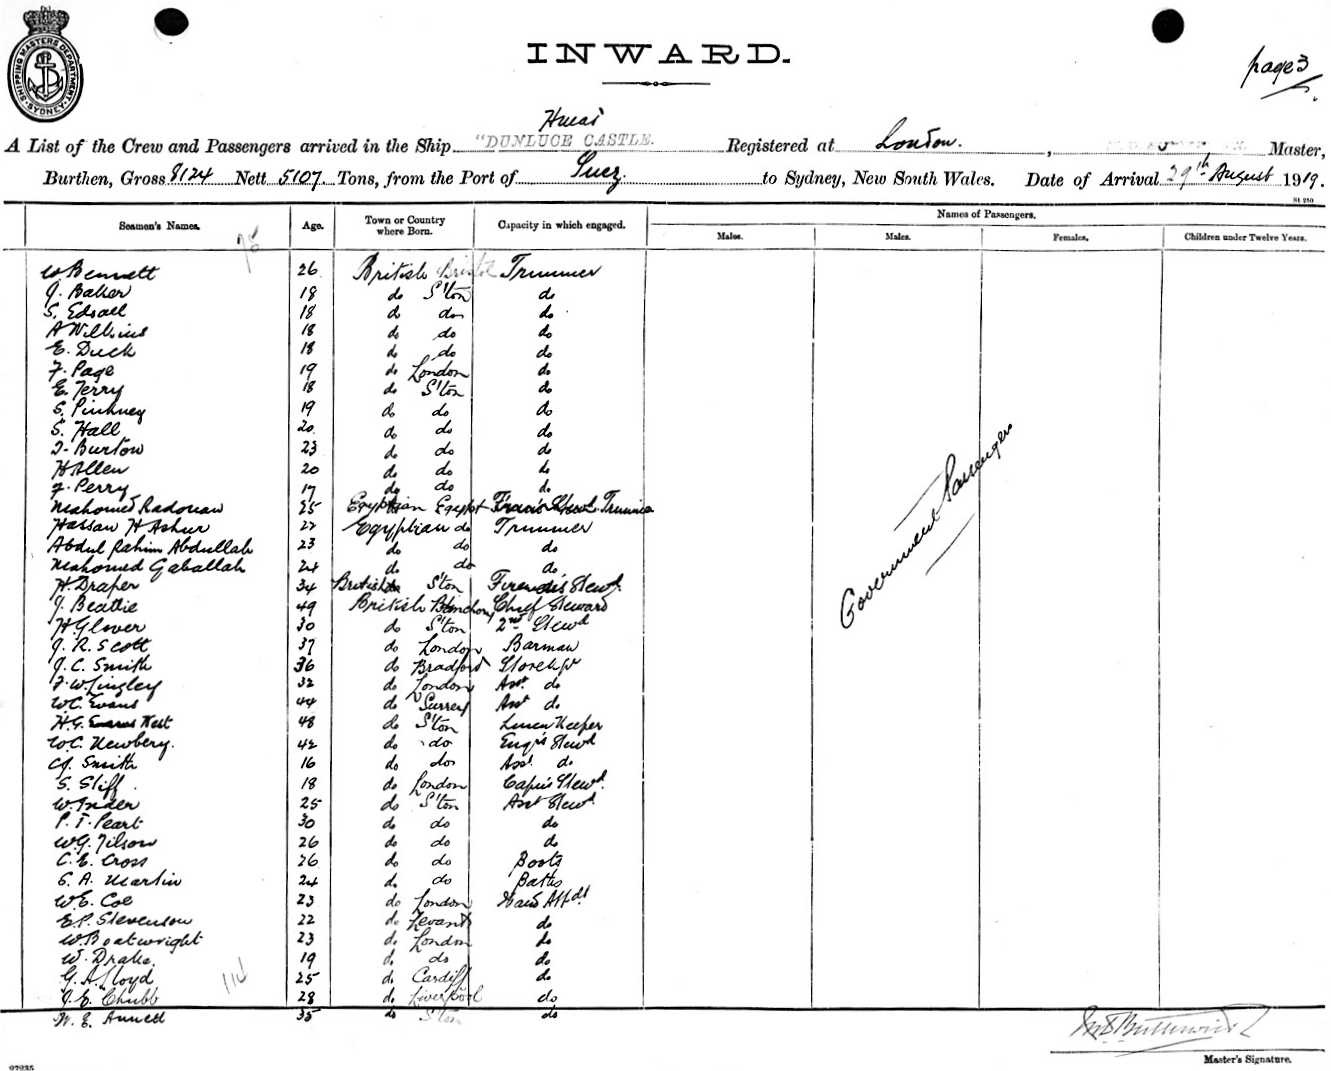 SHIPPING MASTERS DEPARTMENT SYDNEY
INWARD.
page 3
A List of the Crew and Passengers arrived in the Ship "DUNLUCE CASTLE. Registered at London. , Master,
Burthen, Gross 8124 Nett 5107 Tons, from the Port of Suez to Sydney, New South Wales. Date of Arrival 29th August 1919.
Seamen's Names. Age. Town or Country where Born. Capacity in which engaged. Names of Passengers.
Males. Males. Females. Children under Twelve Years.
W Bennett 26 British Bristol Trimmer
J. Baker 18 do S'ton do
S. Edsall 18 do do do
A Wilkins 18 do do do
E. Duck 18 do do do
F. Page 19 do London do
E. Terry 18 do S'ton do
S. Pinkney 19 do do do
S. Hall 20 do do do
Burton 23 do do do
H Allen 20 do do do
F. Perry 17 do do do
Mahomed Radouan 25 Egyptian Egypt Trimmer
Hassan H Ashur 22 Egyptian do Trimmer
Abdul Rahim Abdullah 23 do do do
Mahomed Gaballah 24 do do do
H. Draper 34 British S'ton Firemen's Stewd.
J. Beattie 49 British Chief Steward
H Glover 30 do S'ton 2nd Stewd
J. R. Scott 37 do London Barman
J. C. Smith 36 do Bradford Storekpr
F. W. Lingley 32 do London Asst. do
W C. Evans 44 do Surrey Asst do
H. G. West 48 do S'ton Linen Keeper
W. C. Newbery. 42 do do Engrs Stewd
Smith 16 do do Asst. do
S. Stiff. 18 do London Capt's Stewd.
W. Inder 25 do S'ton Asst Stewd.
P. T. Peart 30 do do do
W. G. Tilson 26 do do do
C. E. Cross 26 do do Boots
A. Martin 24 do do Baths
W. E. Coe 23 do London Attdt
E. P. Stevenson 22 do do
W. Boatwright 23 do London do
W. Drake. 19 do do do
G. A. Lloyd 25 do Cardiff do
J. E. Chubb 28 do Liverpool do
W. E. Annell 35 do S'ton do
Government Passengers
Master's Signature.